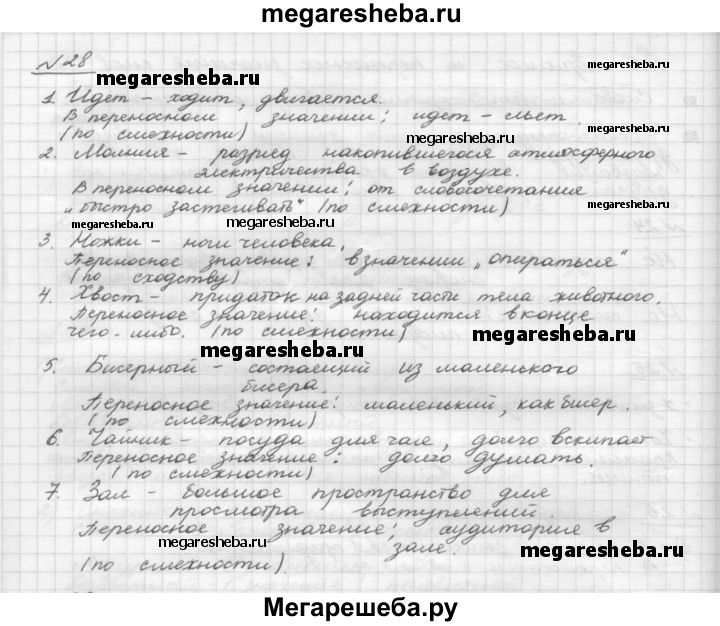 megaresheba.ru
№28
megaresheba.ru
megaresheba.ru
1. Идет – ходит, двигается.
В переносном значении: идет – льет.
(по смежности)
megaresheba.ru
megaresheba.ru
2. Молния – разряд накопившегося атмосферного
электричества в воздухе.
В переносном значении: от словосочетания
„быстро застегивать" (по смежности)
megaresheba.ru
megaresheba.ru
3. Ножки – ноги человека,
Переносное значение: в значении „опираться"
(по сходству)
4. Хвост – придаток на задней части тела животного.
Переносное значение: находится в конце
чего-либо. (по смежности)
megaresheba.ru
megaresheba.ru
5. Бисерный – состоящий из маленького
бисера.
Переносное значение: маленький, как бисер.
(по смежности)
6. Чайник – посуда для чая, долго вскипает
Переносное значение: долго думать.
(по смежности)
7. Зал – большое пространство для
просмотра выступлений.
Переносное значение: аудитория в
зале.
megaresheba.ru
megaresheba.ru
(по смежности).
Мегарешеба.ру